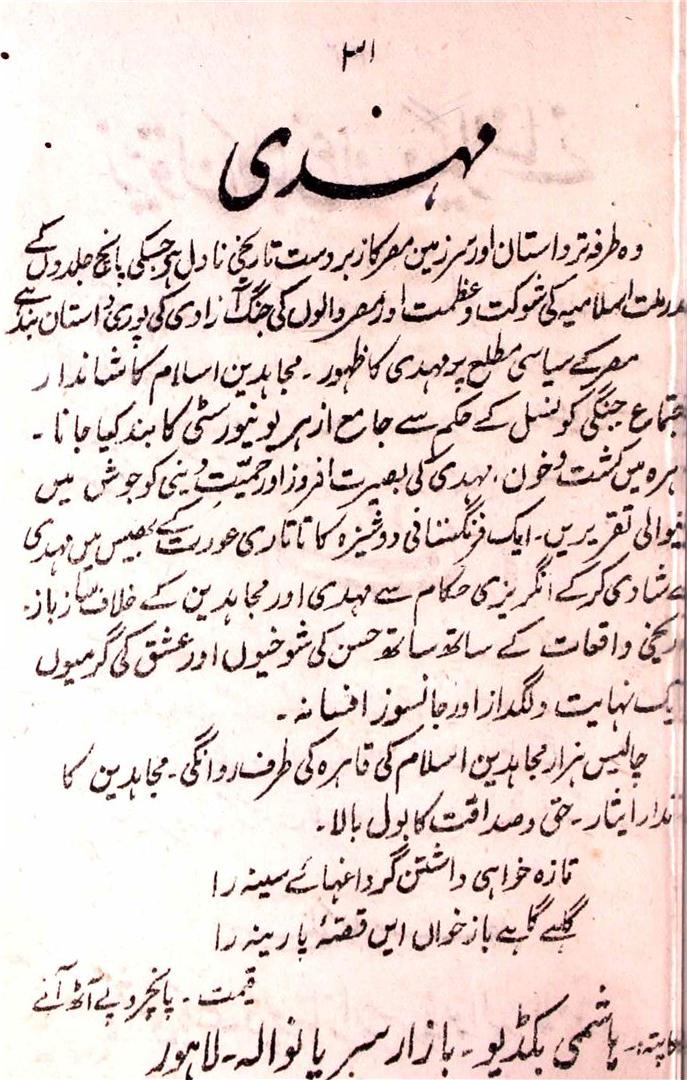 ۳۱
مہندی
وہ طرفہ تر داستان اور سرزمین مصر کا زبردست تاریخی ناول ہی جسکی پانچ جلدوں کے
ملت اسلامیہ کی شوکت و عظمت اور مصر والوں کی جنگ آزادی کی پوری داستان بند ہے
مصر کے سیاسی مطلع پر مہدی کا ظہور ۔ مجاہدین اسلام کا شاندار
جتماع جنگی کونسل کے حکم سے جامع ازہر یونیورسٹی کا بند کیا جانا ۔
ہرہ میں کشت و خون ۔ مہدی کی بصیرت افروز اور حمیّتِ دینی کو جوش میں
نیوالی تقریریں ۔ ایک فرنگستانی دوشیزہ کا تاتاری عورت کے بھیس میں مہدی
ے شادی کر کے انگریزی حکام سے مہدی اور مجاہدین کے خلاف ساز باز ۔
ریخی واقعات کے ساتھ ساتھ حسن کی شوخیوں اور عشق کی گرمیوں
یک نہایت دلگداز اور جانسوز افسانہ ۔
چالیس ہزار مجاہدین اسلام کی قاہرہ کی طرف روانگی ۔ مجاہدین کا
ندار ایثار ۔ حق و صداقت کا بول بالا ۔
تازہ خواہی داشتن گر داغہائے سینہ را
گاہے گاہے باز خواں ایں قصّۂ پارینہ را
قیمت ۔ پانچروپے آٹھ آنے
کا پتہ:۔ ہاشمی بکڈپو ۔ بازار سریانوالہ ۔ لاہور